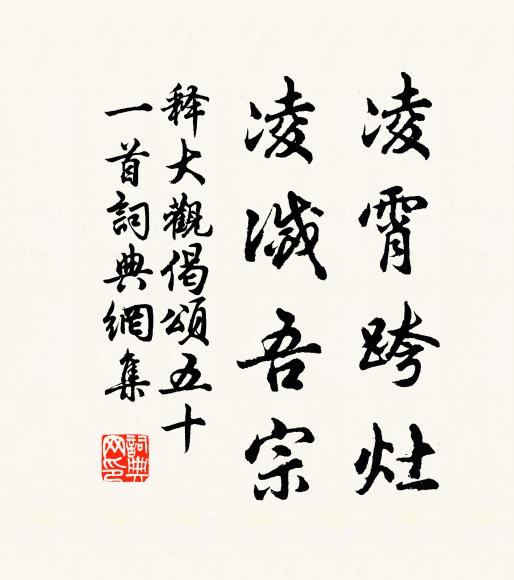 凌霄跨灶
凌滅吾宗
释大觀偈頌五十
一首詞典網集
詞典网印